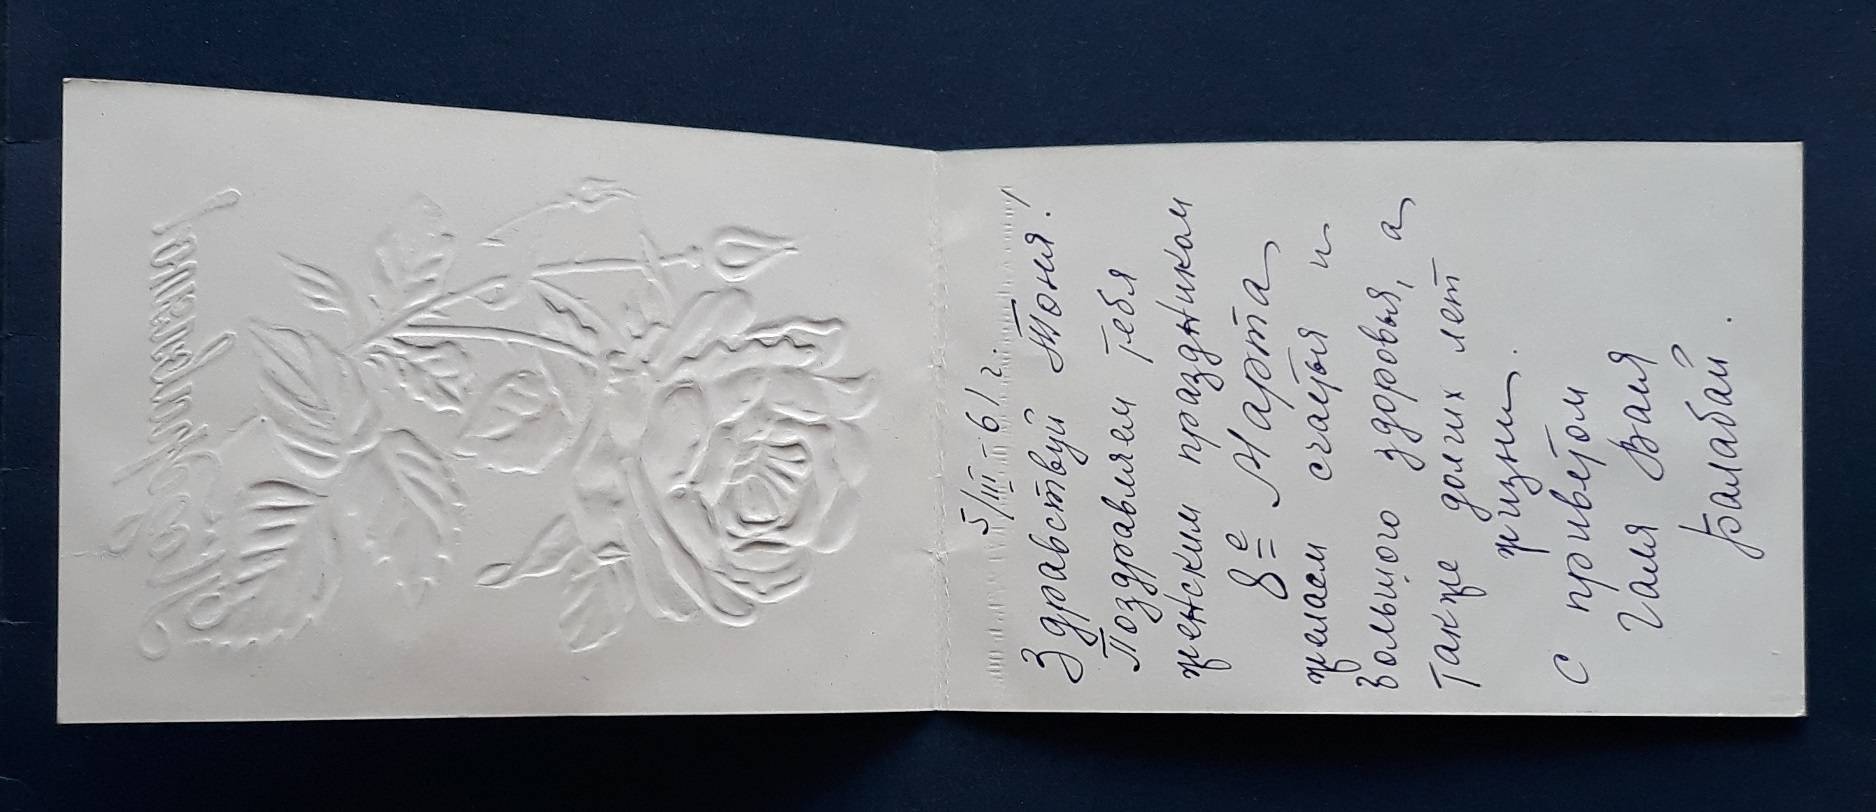 Поздравляю!
5/III 6/ г.
Здравствуй Тоня!
Поздравляем тебя
женским праздником
8е Марта
желаем счастья и
большого здоровья, а
также долгих лет
жизни.
с приветом
Галя Ваня
Балабай.